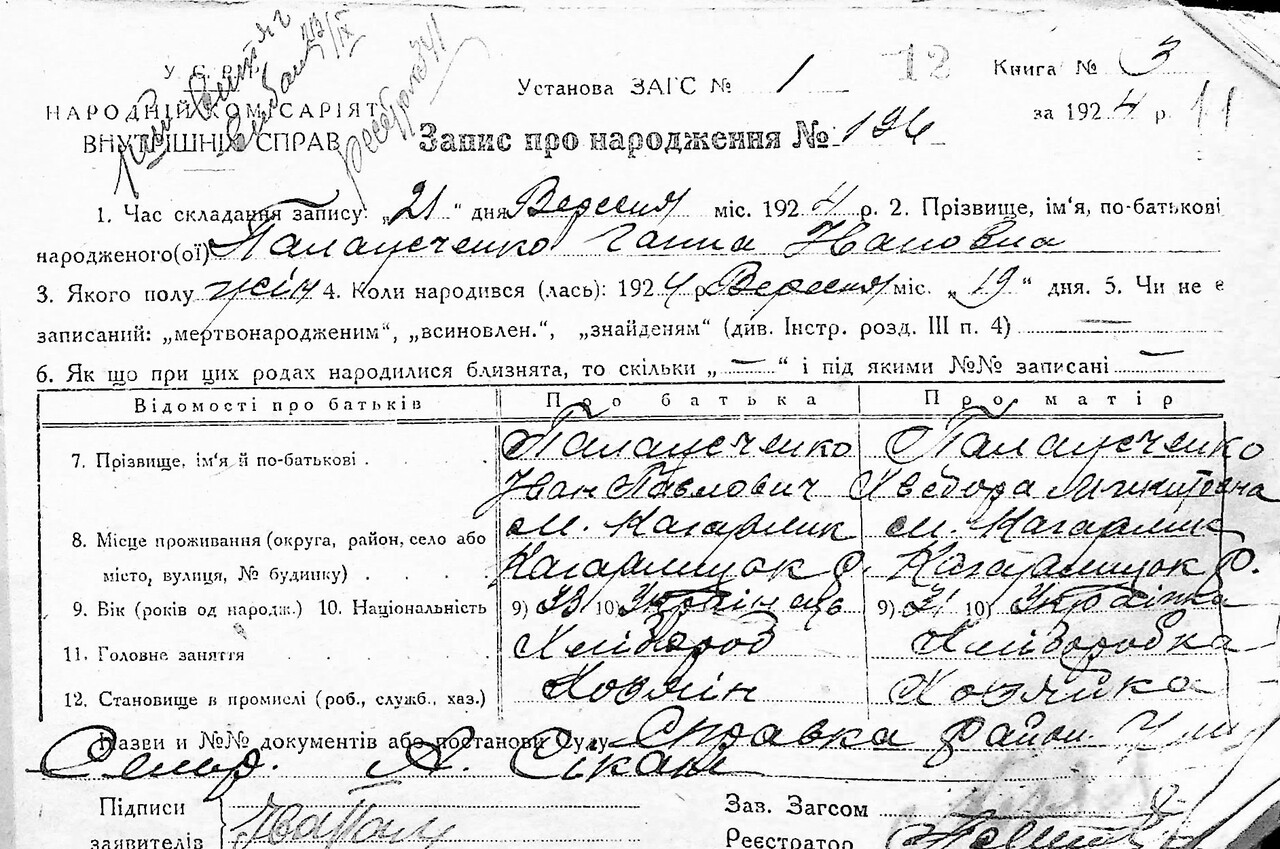 У С Р Р
НАРОДНІЙ КОМІСАРІЯТ
ВНУТРІШНІХ СПРАВ
Установа ЗАГС № 1
12
Книга № 3
за 1924 р.
11
Запис про народження № 196
1. Час складання запису: „21“ дня Вересня міс. 1924 р. 2. Прізвище, ім'я, по-батькові
народженого(ої) Ганна Ивановна
3. Якого полу жін 4. Коли народився (лась): 1924 р. Вересня міс. „19“ дня. 5. Чи не є
записаний: „мертвонародженим“, „всиновлен.“, „знайденям“ (див. Інстр. розд. III п. 4) —
6. Як що при цих родах народилися близнята, то скільки „—“ і під якими №№ записані —
Відомості про батьків Про батька Про матір
7. Прізвище, ім'я й по-батькові
Иван Павлович Хведора Микитовна
8. Місце проживання (округа, район, село або м. Кагарлик м. Кагарлик
місто, вулиця, № будинку) Кагарлицьк р. Кагарлицьк р.
9. Вік (років од народж.) 10. Національність 9) 33 10) Українець 9) 31 10) Українка
11. Головне заняття Хлібороб Хліборобка
12. Становище в промислі (роб., служб., хаз.) Хозяін Хозяйка
Назви и №№ документів або постанови Суду Справка район
А.
Підписи
заявителів
Зав. Загсом
Реєстратор